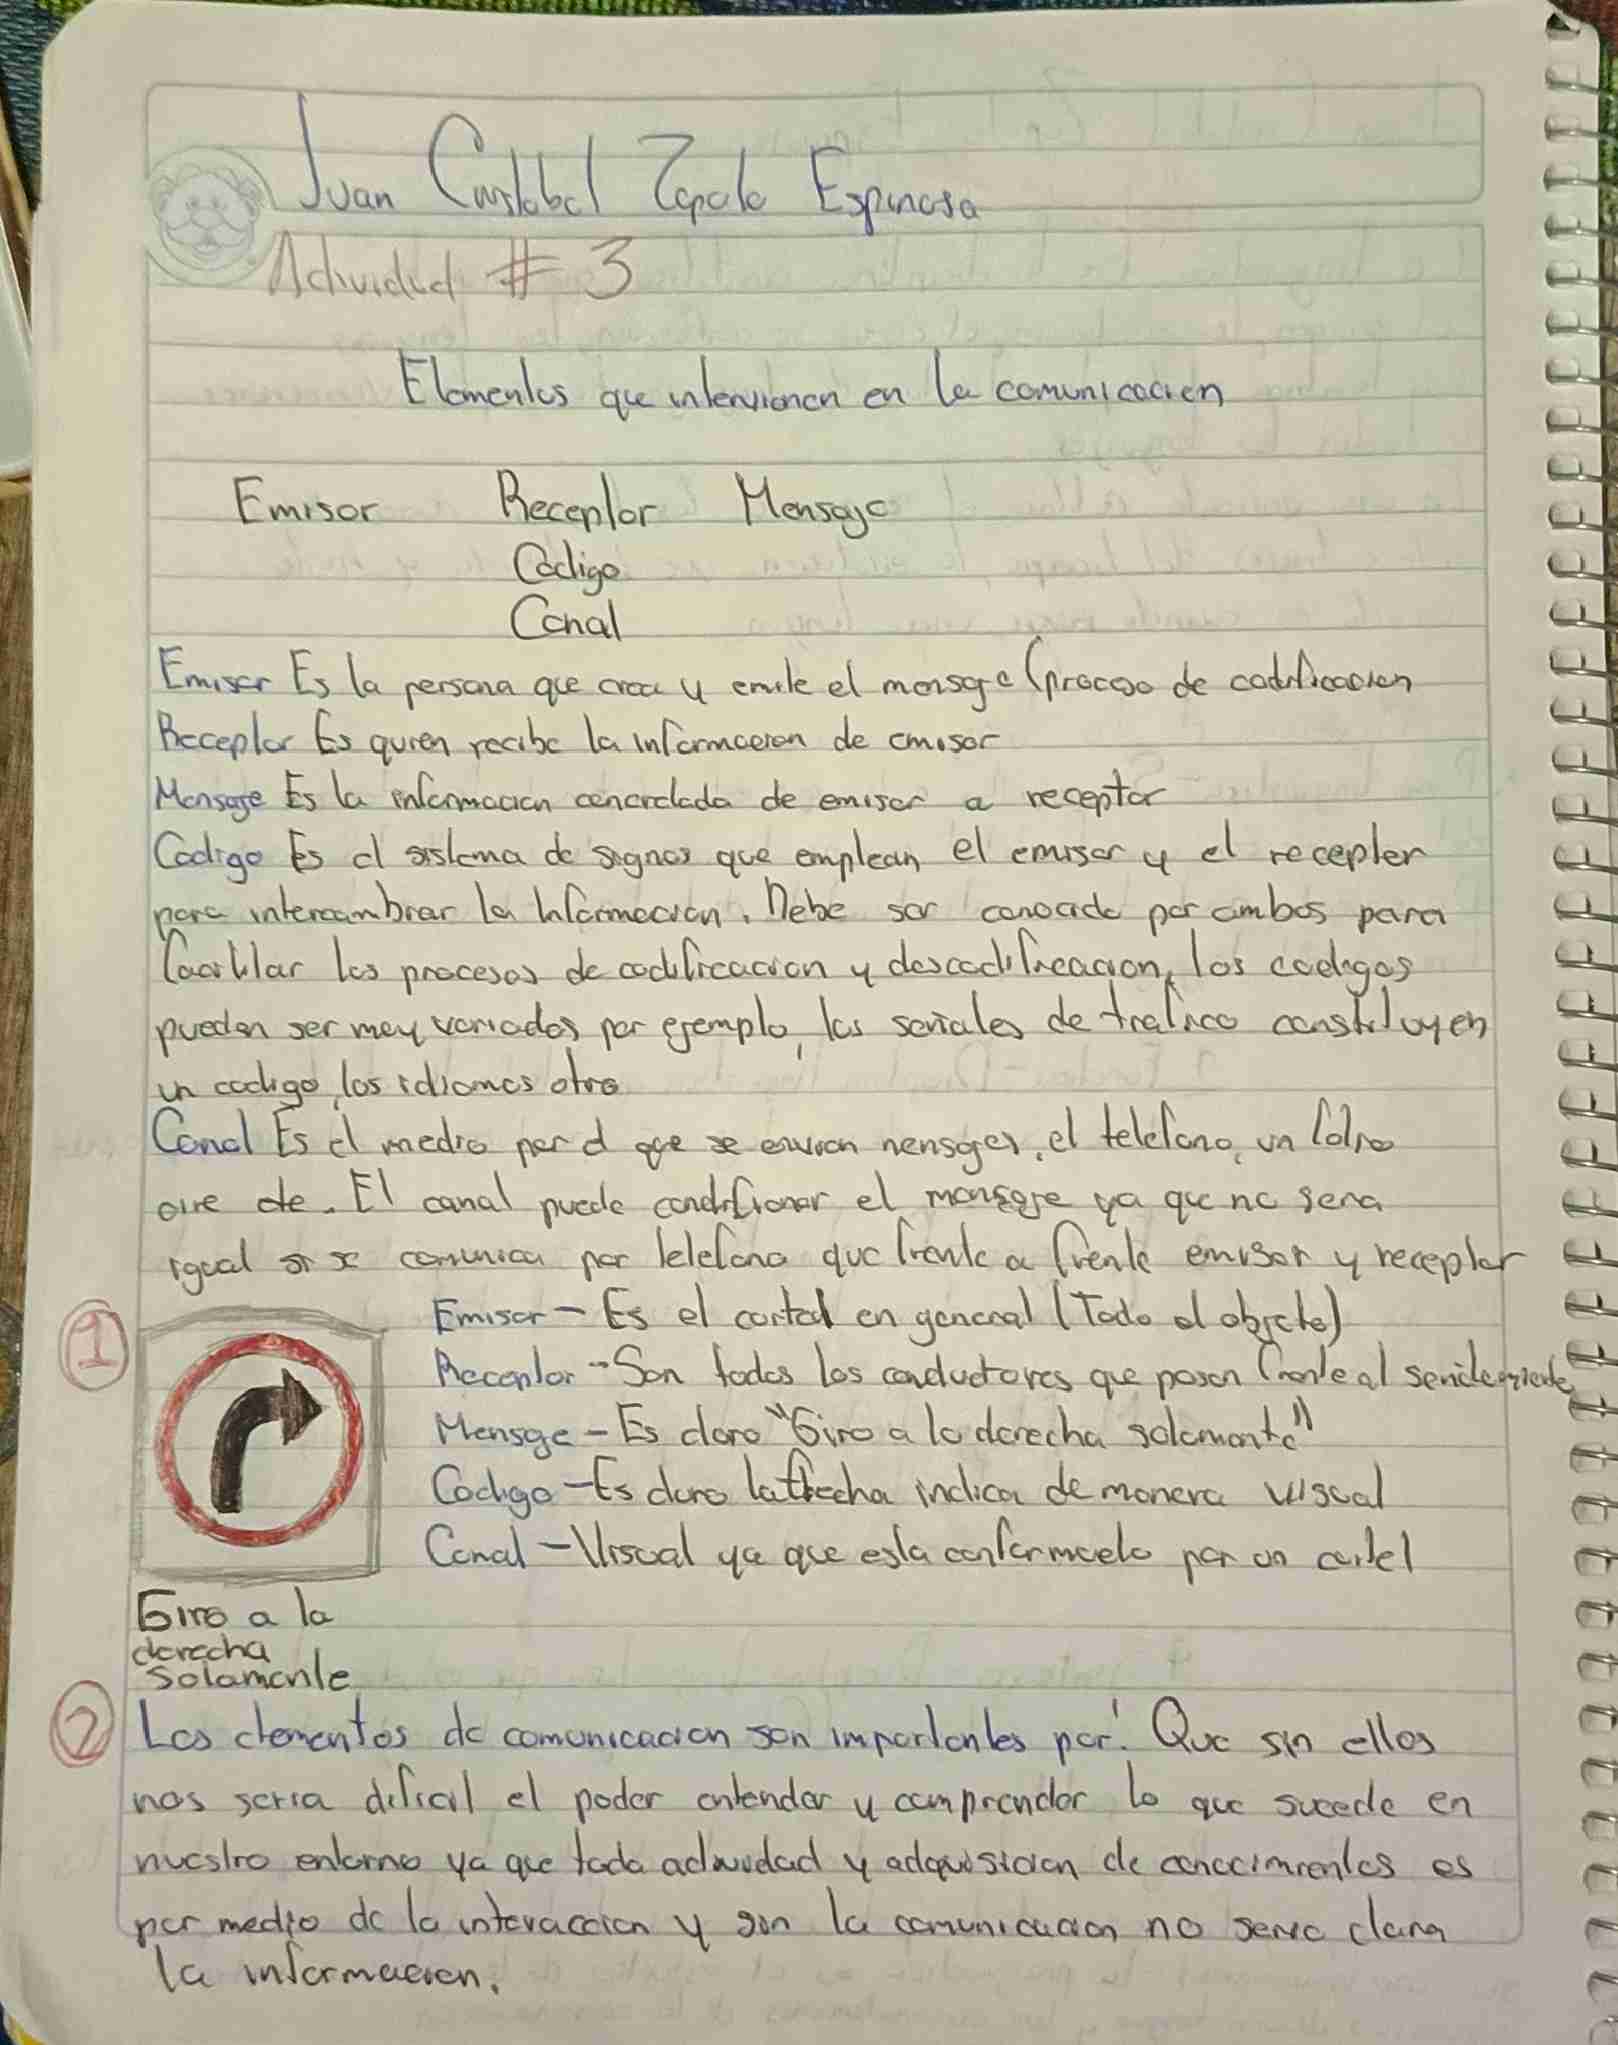 Juan Cristobal Zapata Espinosa
Actividad # 3
Elementos que intervienen en la comunicacion
Emisor Receptor Mensaje
Codigo
Canal
Emisor Es la persona que crea y emite el mensaje (proceso de codificacion
Receptor Es quien recibe la informacion de emisor
Mensaje Es la informacion de emisor a receptor
Codigo Es el sistema de signos que emplean el emisor y el receptor
para intercambiar la informacion. Debe ser conocido por ambos para
facilitar los procesos de codificacion y descodificacion, los codigos
pueden ser muy variados por ejemplo, las señales de trafico constituyen
un codigo, los idiomas otro
Canal Es el medio por el que se envian mensajes, el telefono, un
aire etc. El canal puede condicionar el mensaje ya que no sera
igual si se comunica por telefono que frente a frente emisor y receptor
1
Emisor - Es el cartel en general (Todo el objeto)
Receptor - Son todos los conductores que pasen frente al
Mensaje - Es claro "Giro a la derecha solamente"
Codigo - Es claro la flecha indica de manera visual
Canal - Visual ya que esta conformado por un cartel
Giro a la
derecha
solamente
2 Los elementos de comunicacion son importantes por: Que sin ellos
nos seria dificil el poder entender y comprender lo que sucede en
nuestro entorno ya que toda actividad y adquisicion de conocimientos es
por medio de la interaccion y sin la comunicacion no seria clara
la informacion.